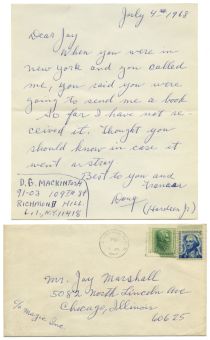 July 4th 1968
Dear Jay
When you were in
New York and you called
me, you said you were
going to send me a book
So far I have not re-
ceived it. Thought you
should know in case it
went a stray
Best to you and
Frances
Doug
(Hardeen Jr)
D.B. MACKINTOSH
91-03 109TH ST
RICHMOND HILL
L.I., N.Y. 11418
Mr. Jay Marshall
5082 North Lincoln Ave
Chicago, Illinois
60625
c/o Magic Inc.